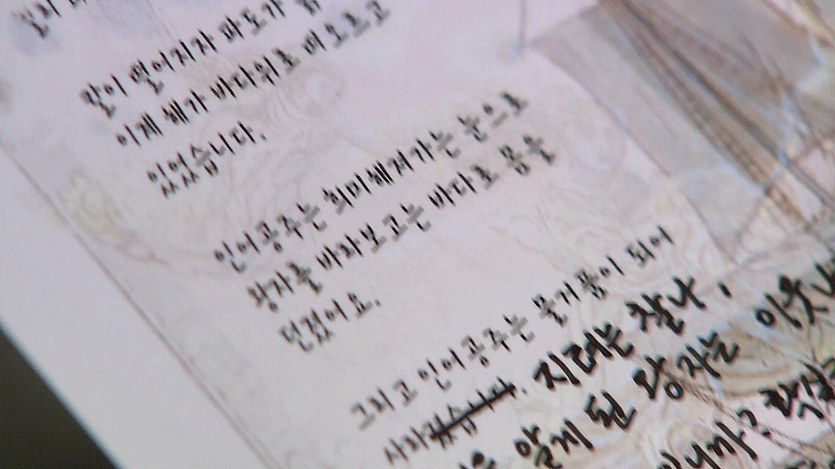 칼이 떨어지자 파도가
이제 해가 바다위로 떠오르고
있었습니다.
인어공주는 희미해져가는 눈으로
왕자를 바라보고는 바다로 몸을
던졌어요.
그리고 인어공주는 물거품이 되어
사라졌습니다. 지려는 찰나,
알게 된 왕자는